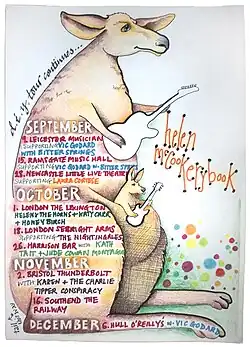 d.i.y. tour continues...
helen
mccookerybook
SEPTEMBER
9. LEICESTER MUSICIAN
SUPPORTING VIC GODARD
WITH BITTER SPRINGS
15. RAMSGATE MUSIC HALL
SUPPORTING VIC GODARD w. BITTER SPRINGS
28. NEWCASTLE LITTLE LIVE THEATRE
SUPPORTING LAURA CORTESE
OCTOBER
1. LONDON THE LEXINGTON
HELEN & THE HORNS + KATY CARR
+ HONEY BIRCH
18. LONDON SEBRIGHT ARMS
SUPPORTING THE NIGHTINGALES
26. HARRISON BAR WITH KATH
TAIT + JUDE COWAN MONTAGUE
NOVEMBER
2. BRISTOL THUNDERBOLT
WITH KAREN + THE CHARLIE
TIPPER CONSPIRACY
16. SOUTHEND THE
RAILWAY
DECEMBER 6. HULL O'REILLY'S w. VIC GODARD